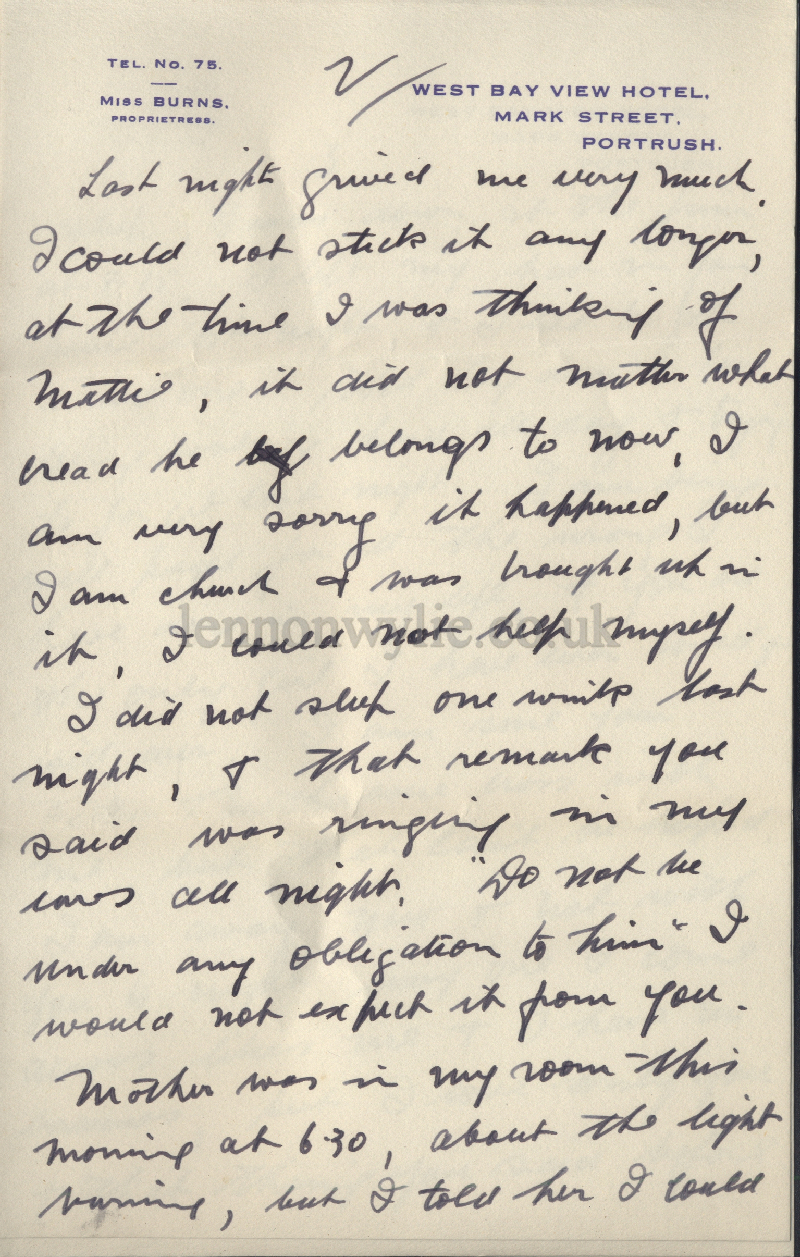 TEL. NO. 75.
MISS BURNS,
PROPRIETRESS.
2/
WEST BAY VIEW HOTEL,
MARK STREET,
PORTRUSH.
Last night grived me very much.
I could not stick it any longer,
at the time I was thinking of
Mattie, it did not matter what
he belongs to now, I
am very sorry it happened, but
I am church & was brought up in
it, I could not help myself.
lennonwylie.co.uk
I did not sleep one wink last
night, & that remark you
said was ringing in my
ears all night. "Do not be
under any obligation to him" I
would not expect it from you.
Mother was in my room this
morning at 6.30, about the light
burning, but I told her I could